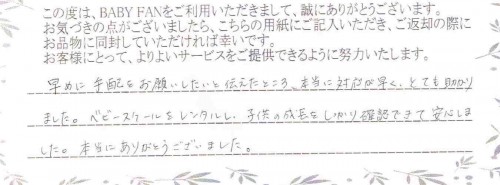 この度は、BABY FANをご利用いただきまして、誠にありがとうございます。
お気づきの点がございましたら、こちらの用紙にご記入いただき、ご返却の際に
お品物に同封していただければ幸いです。
お客様にとって、よりよいサービスをご提供できるように努力いたします。
早めに手配をお願いしたいと伝えたところ、本当に対応が早く、とても助かり
ました。ベビースケールをレンタルし、子供の成長をしっかり確認できて安心しま
した。本当にありがとうございました。